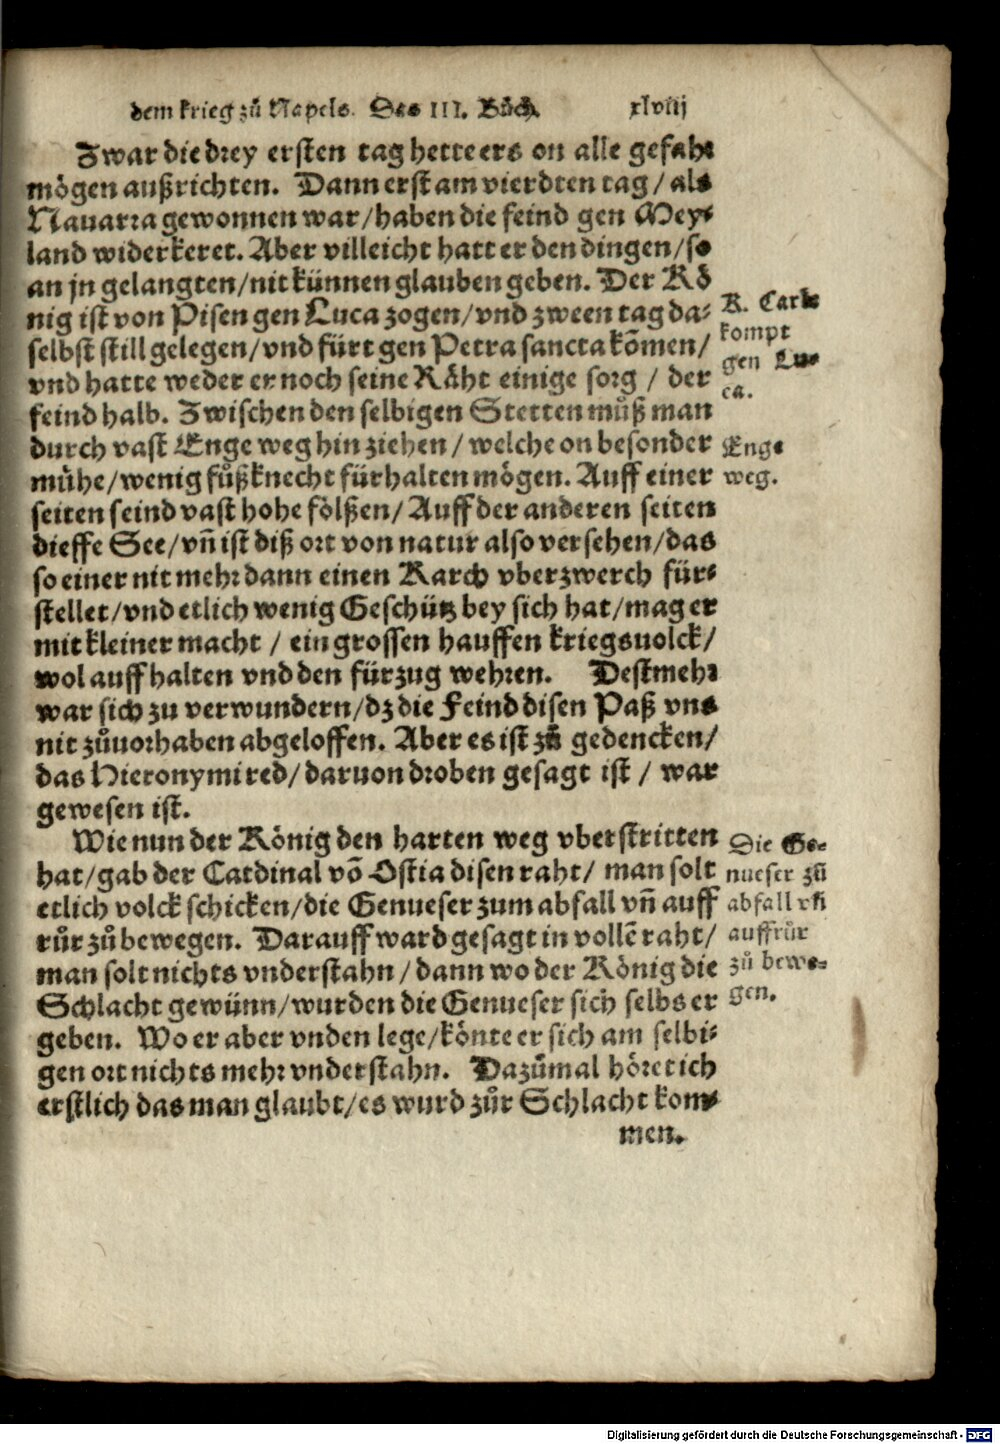 dem krieg zů Napels. Das III. Bůch. xlviij
Zwar die drey ersten tag hette ers on alle gefahr
mögen außrichten. Dann erst am vierdten tag/ als
Nauarra gewonnen war/haben die feind gen Mey⸗
land widerkeret. Aber villeicht hatt er den dingen/so
an jn gelangten/nit künnen glauben geben. Der Kö
nig ist von Pisen gen Luca zogen/vnd zween tag da⸗
selbst still gelegen/vnd fürt gen Petra sancta kōmen/
vnd hatte weder er noch seine Räht einige sorg / der
feind halb. Zwischen den selbigen Stetten můß man
durch vast Enge weg hin ziehen/ welche on besonder
mühe/wenig fůßknecht fürhalten mögen. Auff einer
seiten seind vast hohe fölßen/ Auff der anderen seiten
dieffe See/vñ ist diß ort von natur also versehen/das
so einer nit mehr dann einen Karch vberzwerch für⸗
stellet/vnd etlich wenig Geschütz bey sich hat/mag er
mit kleiner macht / ein grossen hauffen kriegsuolck/
wol auffhalten vnd den fürzug wehren. Destmehr
war sich zu verwundern/dz die Feind disen Paß vns
nit zůuor haben abgeloffen. Aber es ist zů gedencken/
das Hieronymi red/daruon droben gesagt ist / war
gewesen ist.
Wie nun der König den harten weg vberstritten
hat/gab der Cardinal vō Ostia disen raht/ man solt
etlich volck schicken/die Genueser zum abfall vñ auff
růr zů bewegen. Darauff ward gesagt in vollē raht/
man solt nichts vnderstahn/dann wo der König die
Schlacht gewünn/wurden die Genueser sich selbs er
geben. Wo er aber vnden lege/könte er sich am selbi⸗
gen ort nichts mehr vnderstahn. Dazůmal höret ich
erstlich das man glaubt/es wurd zůr Schlacht kom⸗
men.
K. Carle
kompt
gen Lu⸗
ca.
Enge
weg.
Die Ge⸗
nueser zů
abfall vñ
auffrůr
zů bewe⸗
gen.
Digitalisierung gefördert durch die Deutsche Forschungsgemeinschaft - DFG